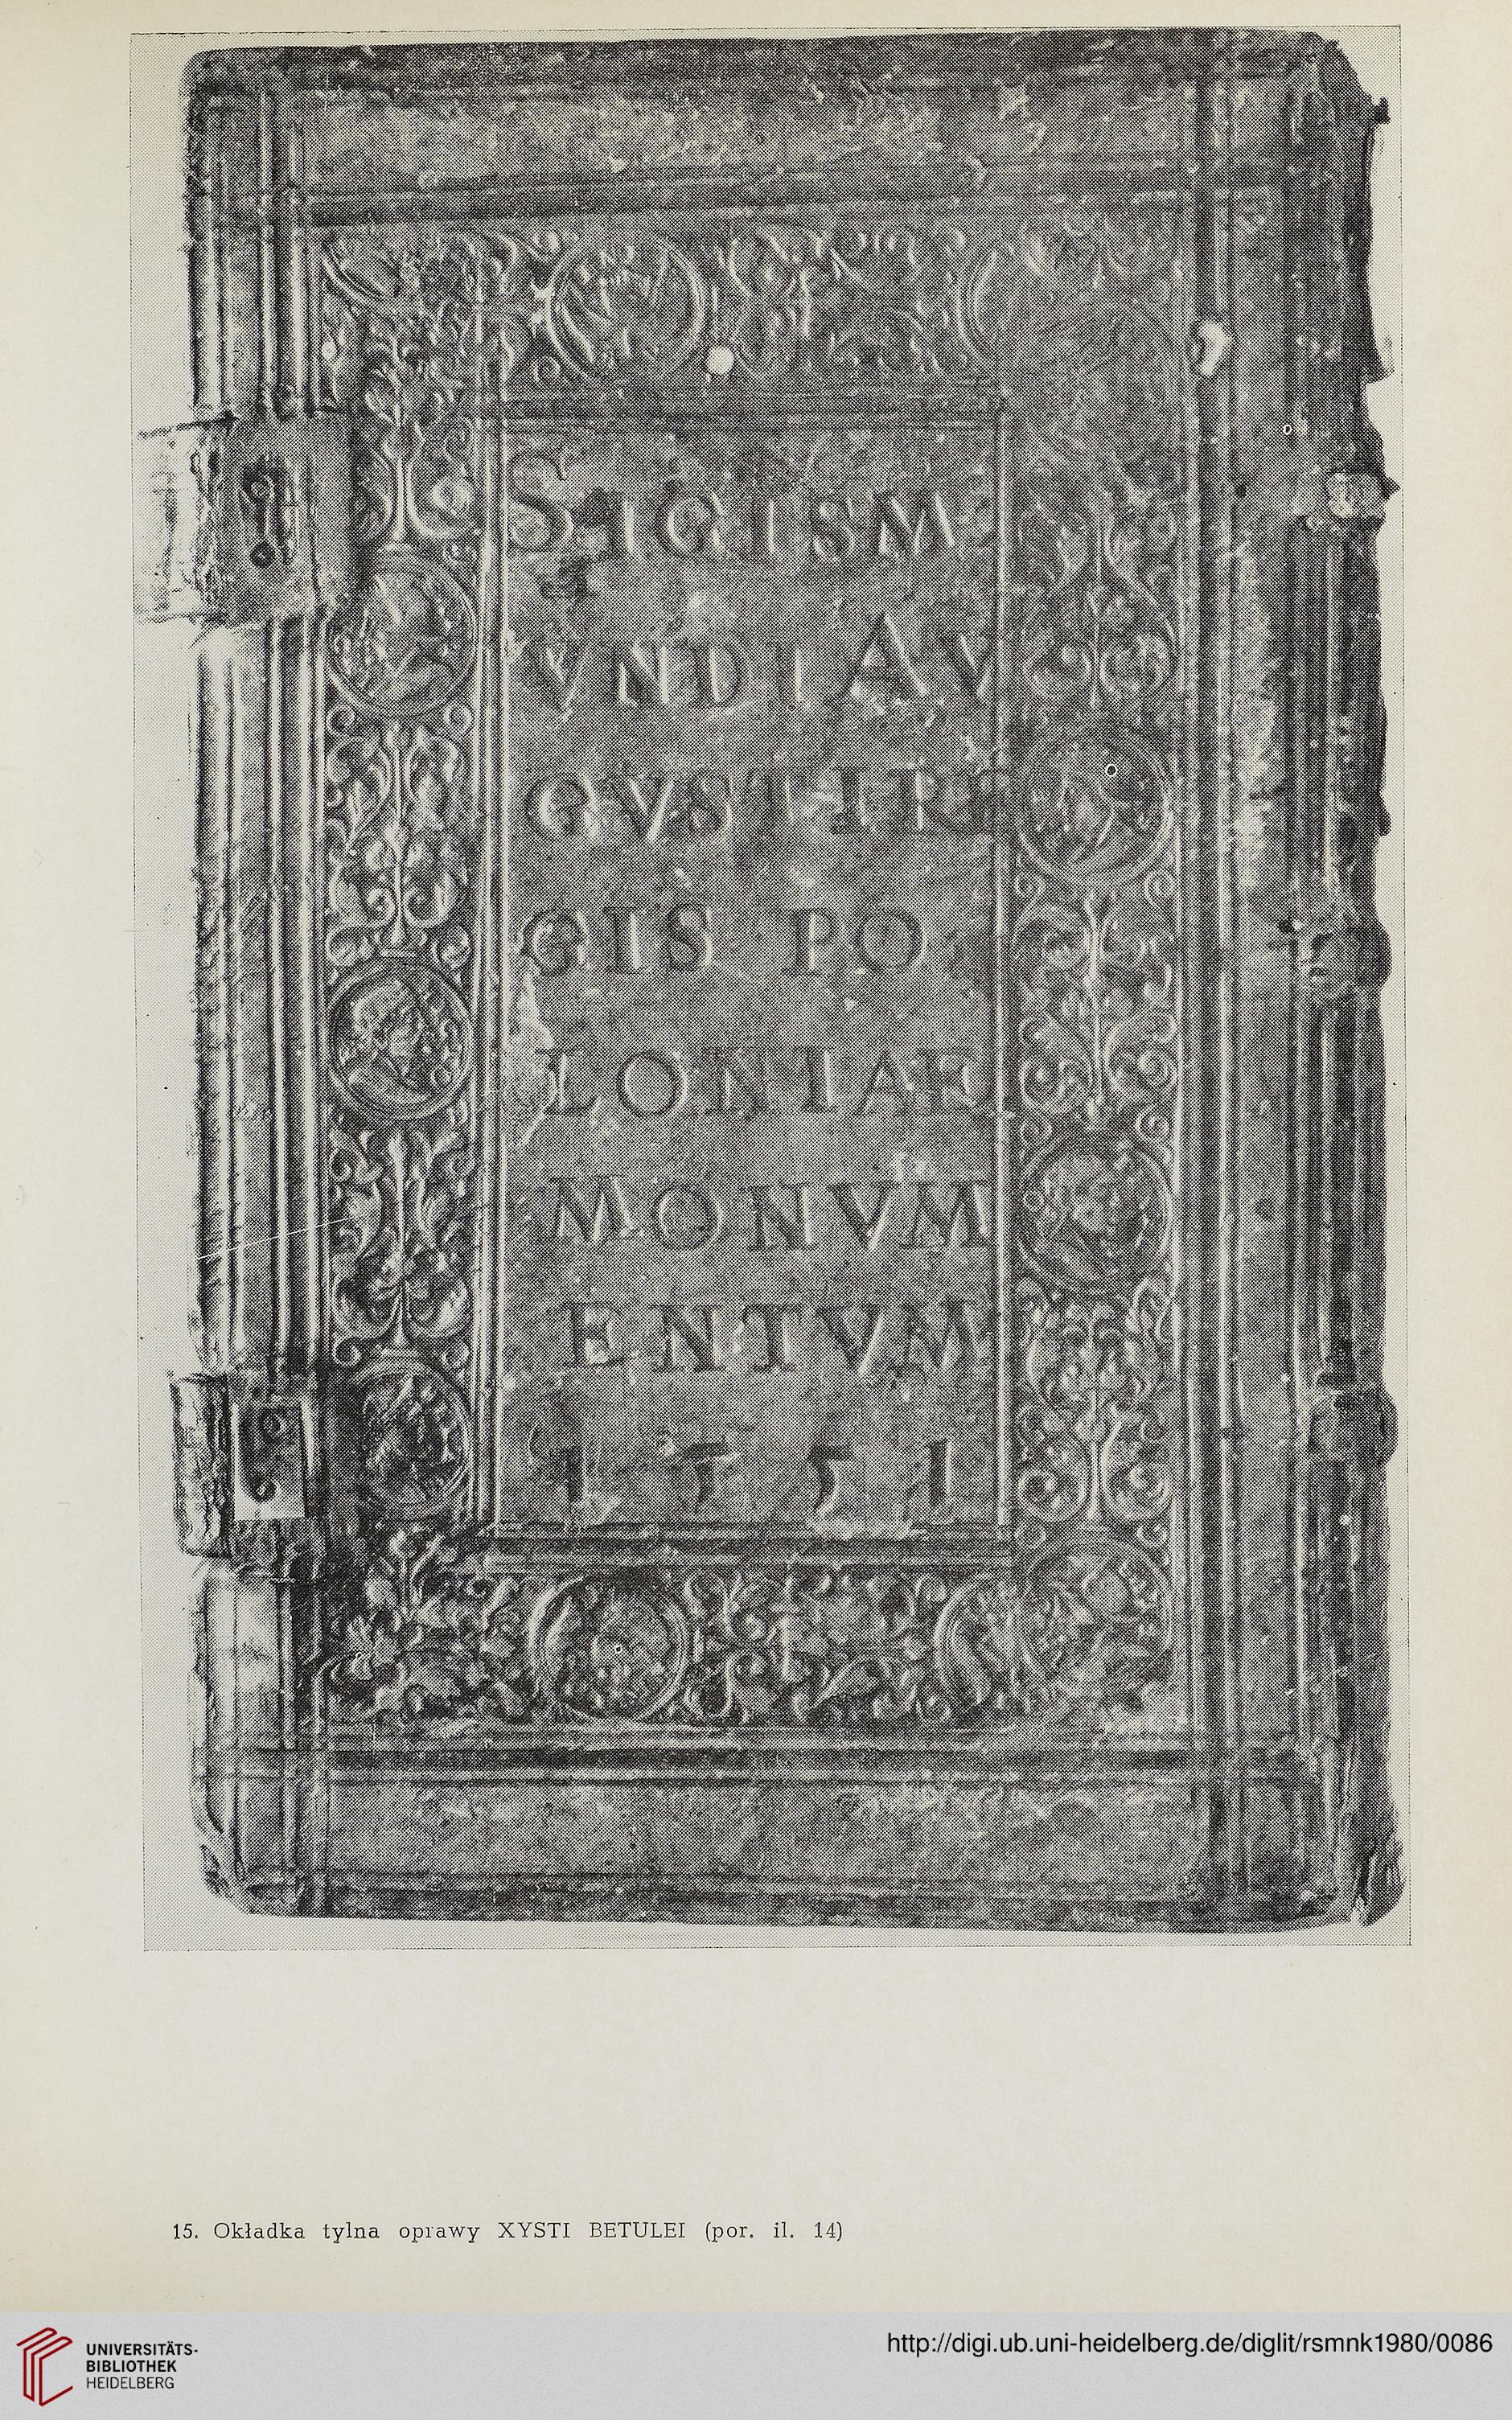 SIGISM
VNDI AV
GVSTI R
GIS PO
LONIAE
MONVM
ENTVM
1551
15. Okładka tylna oprawy XYSTI BETULEI (por. il. 14)
UNIVERSITÄTS-
BIBLIOTHEK
HEIDELBERG
http://digi.ub.uni-heidelberg.de/diglit/rsmnk1980/0086